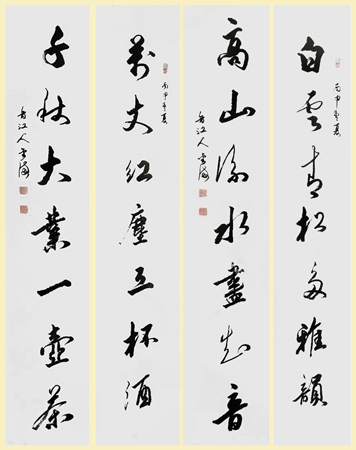 白雲青松多雅韻
丙申年夏
高山流水盡知音
江人
萬丈紅塵三杯酒
丙申年夏
千秋大業一壺茶
江人